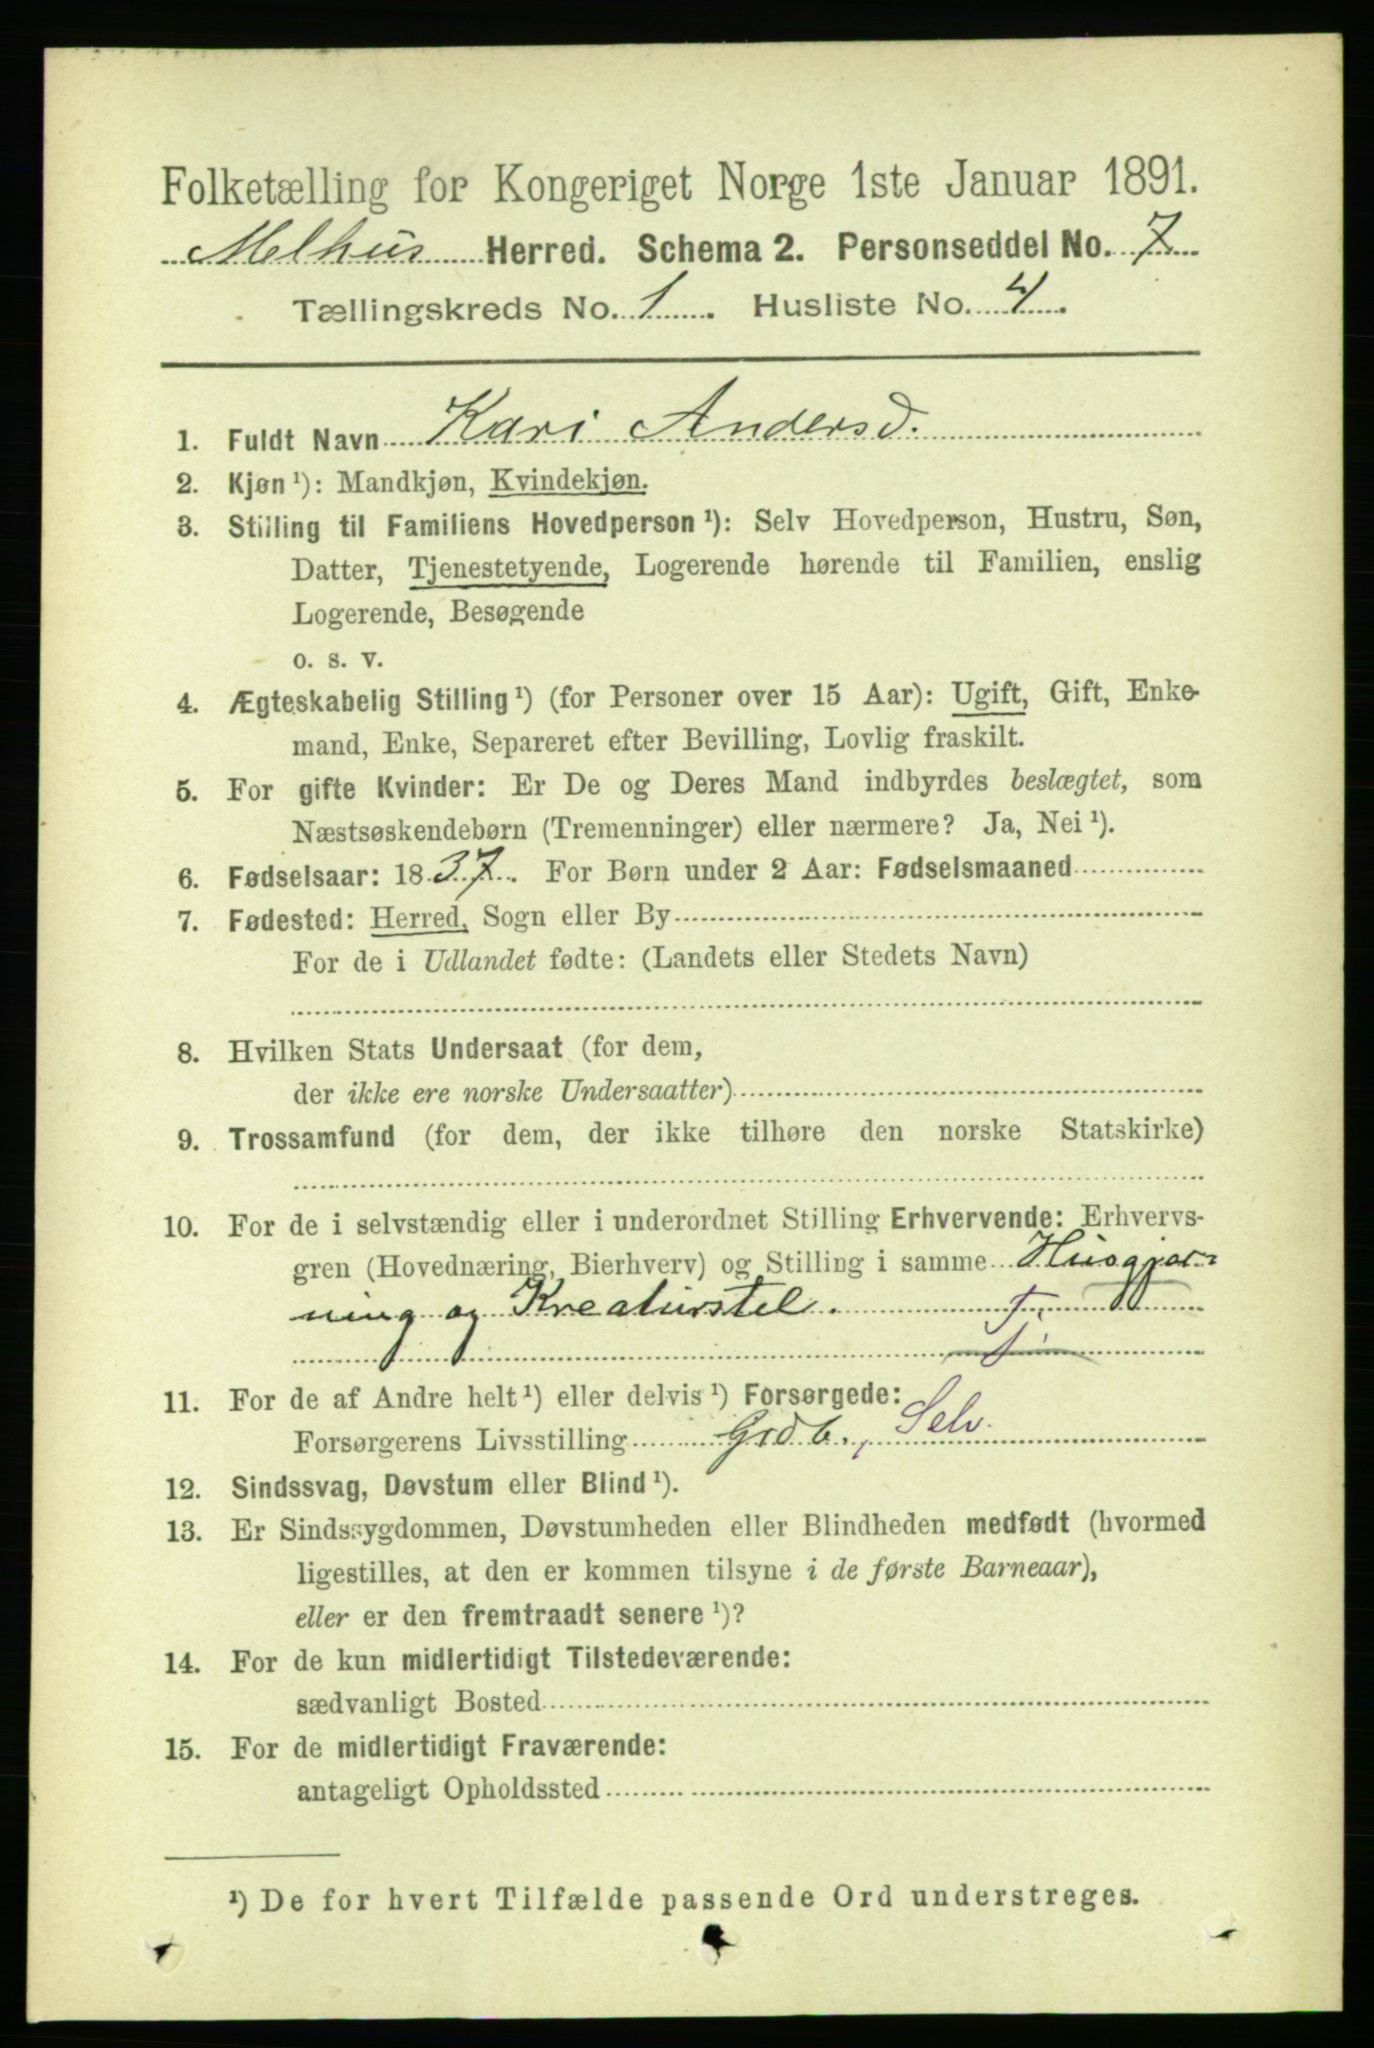 Folketælling for Kongeriget Norge 1ste Januar 1891.
Melhus Herred. Schema 2. Personseddel No. 7
Tællingskreds No. 1. Husliste No. 4.
1. Fuldt Navn Kari Andersd.
2. Kjøn ¹): Mandkjøn, Kvindekjøn.
3. Stilling til Familiens Hovedperson ¹): Selv Hovedperson, Hustru, Søn,
Datter, Tjenestetyende, Logerende hørende til Familien, enslig
Logerende, Besøgende
o. s. v.
4. Ægteskabelig Stilling ¹) (for Personer over 15 Aar): Ugift, Gift, Enke-
mand, Enke, Separeret efter Bevilling, Lovlig fraskilt.
5. For gifte Kvinder: Er De og Deres Mand indbyrdes beslægtet, som
Næstsøskendebørn (Tremenninger) eller nærmere? Ja, Nei ¹).
6. Fødselsaar: 1837. For Børn under 2 Aar: Fødselsmaaned
7. Fødested: Herred, Sogn eller By
For de i Udlandet fødte: (Landets eller Stedets Navn)
8. Hvilken Stats Undersaat (for dem,
der ikke ere norske Undersaatter)
9. Trossamfund (for dem, der ikke tilhøre den norske Statskirke)
10. For de i selvstændig eller i underordnet Stilling Erhvervende: Erhvervs-
gren (Hovednæring, Bierhverv) og Stilling i samme Husgjer-
ning og Kreaturstel. T.
11. For de af Andre helt ¹) eller delvis ¹) Forsørgede:
Forsørgerens Livsstilling Grdb., Selv.
12. Sindssvag, Døvstum eller Blind ¹).
13. Er Sindssygdommen, Døvstumheden eller Blindheden medfødt (hvormed
ligestilles, at den er kommen tilsyne i de første Barneaar),
eller er den fremtraadt senere ¹)?
14. For de kun midlertidigt Tilstedeværende:
sædvanligt Bosted
15. For de midlertidigt Fraværende:
antageligt Opholdssted
¹) De for hvert Tilfælde passende Ord understreges.